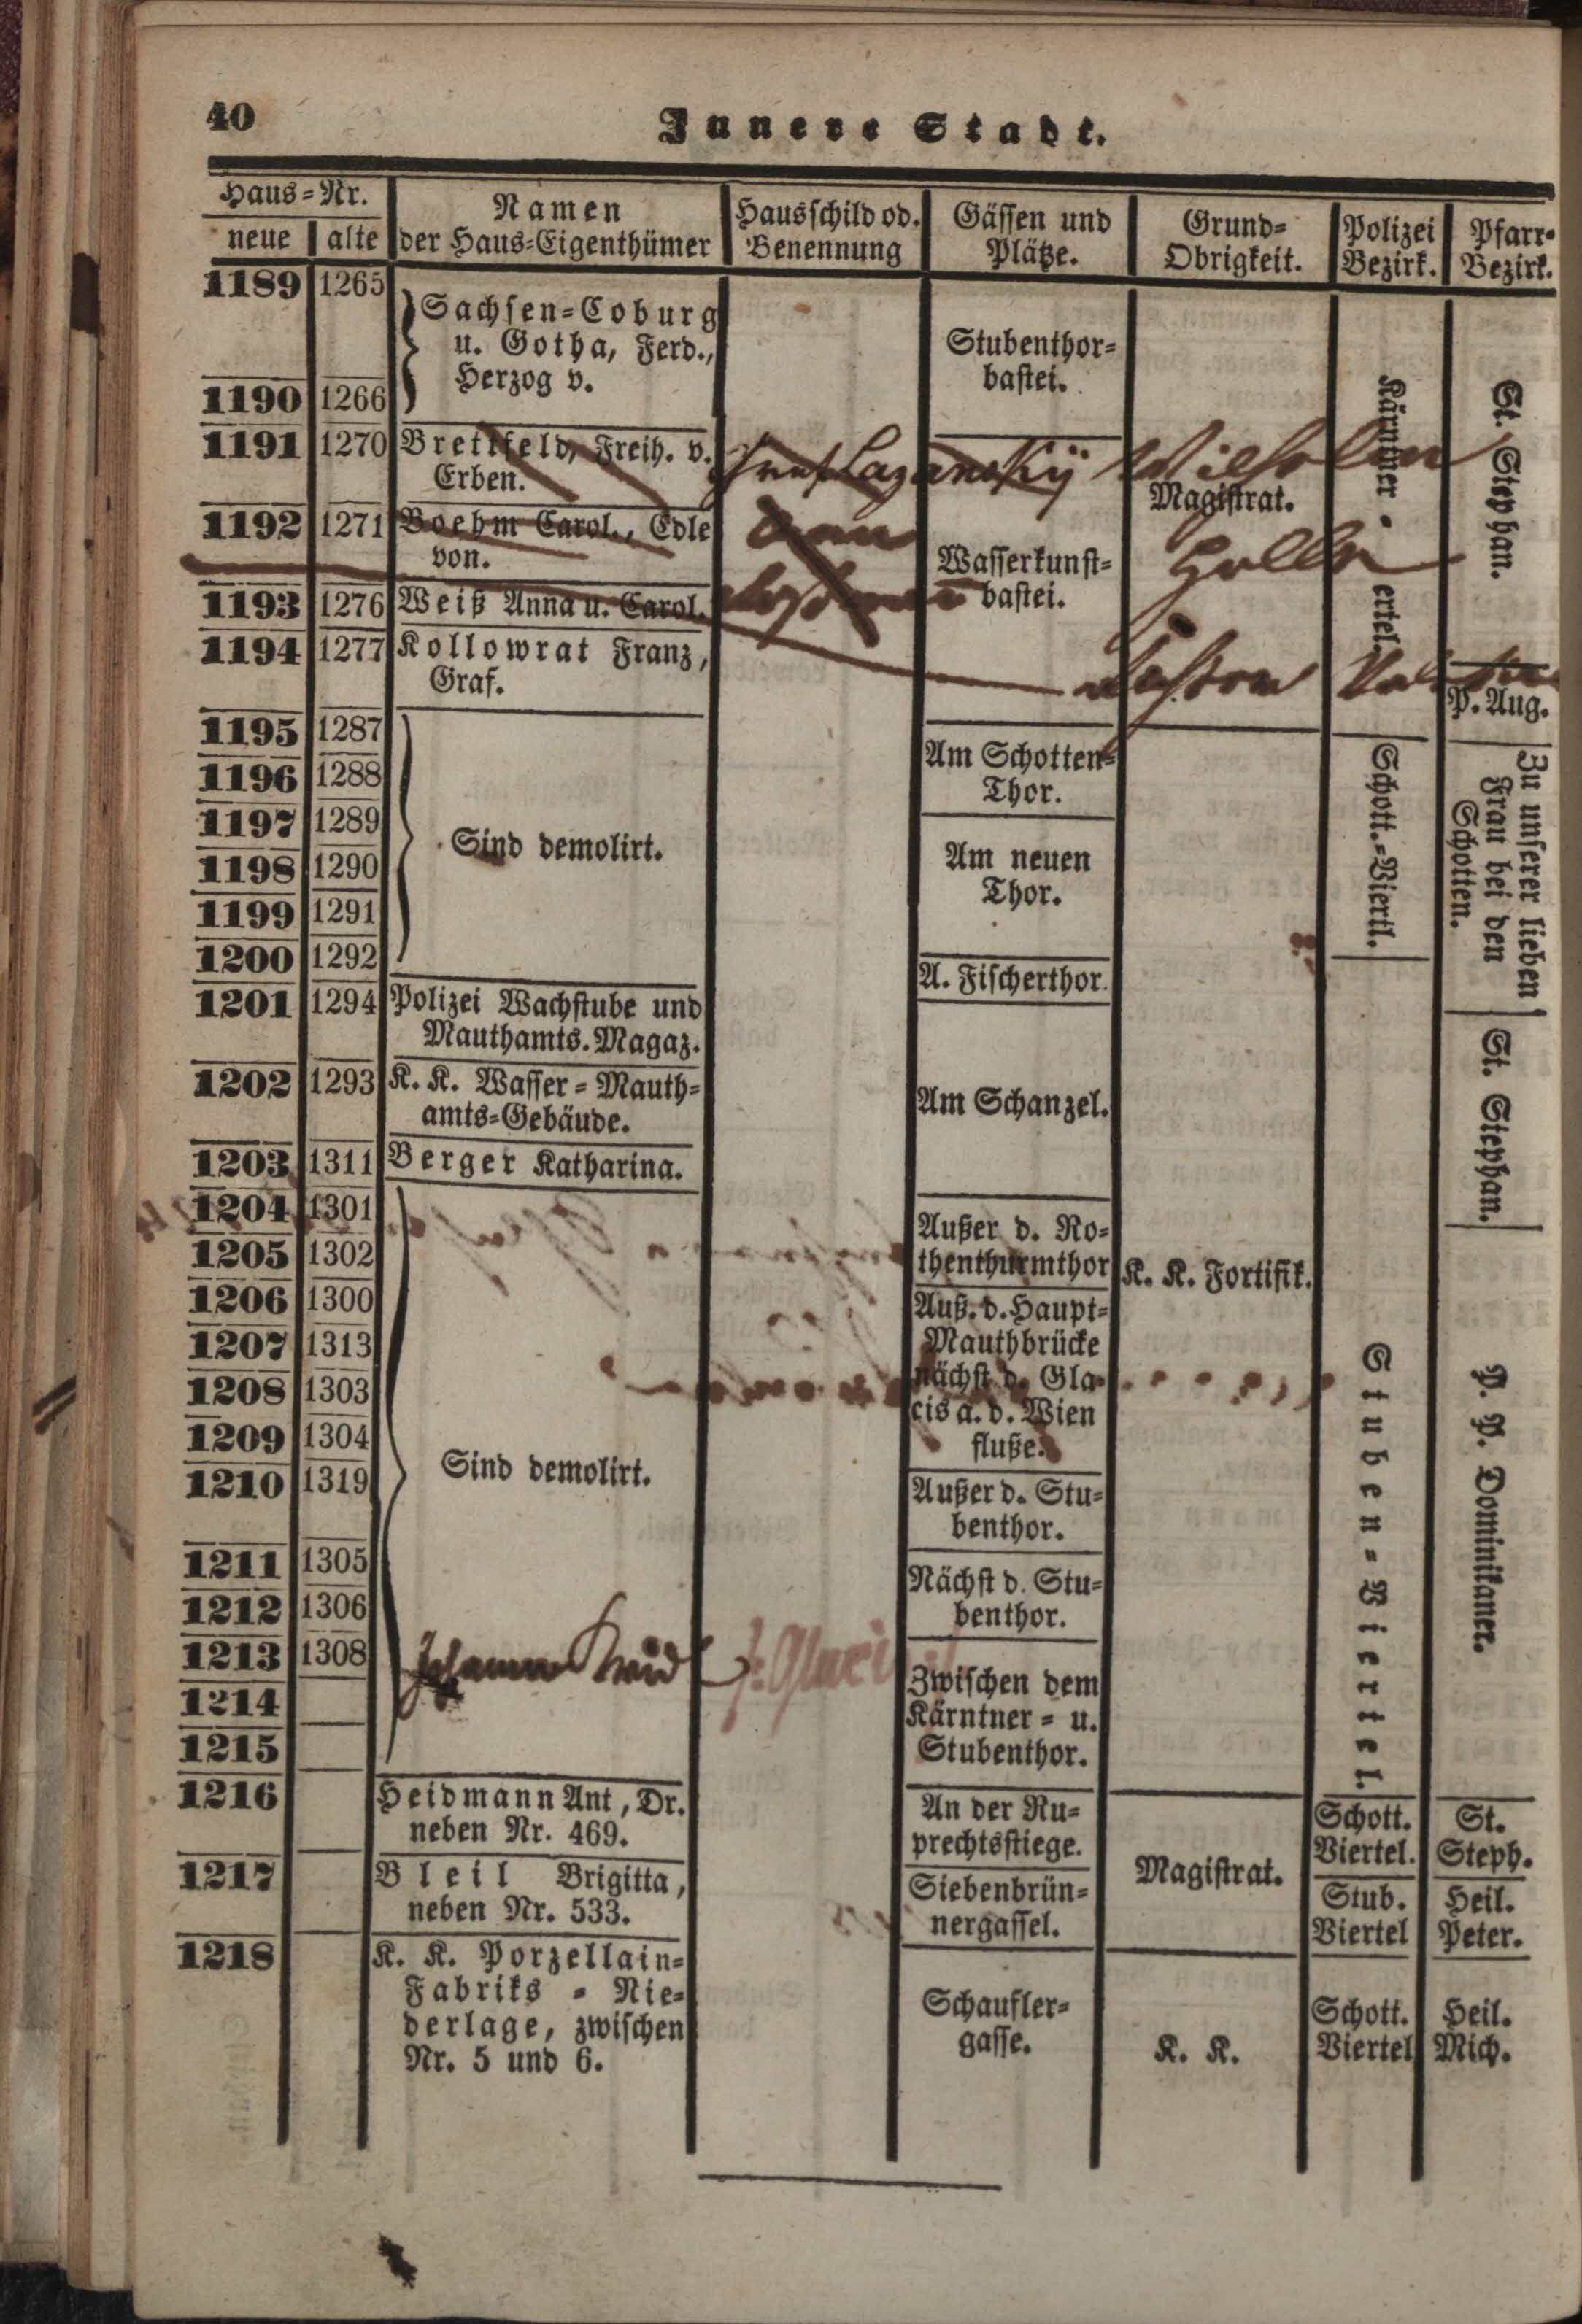 40
Innere Stadt.
Haus-Nr.
neue alte
Namen
der Haus-Eigenthümer
Hausschild od.
Benennung
Gässen und
Plätze.
Grund-
Obrigkeit.
Polizei
Bezirk.
Pfarr-
Bezirk.
1189 1265
Sachsen-Coburg
u. Gotha, Ferd.,
Herzog v.
Stubenthor-
bastei.
1190 1266
1191 1270 Brettfeld, Freih. v.
Erben.
Lazansky Wilhelm
Magistrat.
1192 1271 Boehm Carol., Edle
von.
Wasserkunst-
bastei.
1193 1276 Weiß Anna u. Carol.
1194 1277 Kollowrat Franz,
Graf.
Kärntner-
ertel.
St. Stephan.
P. Aug.
1195 1287
1196 1288
1197 1289
1198 1290
1199 1291
1200 1292
Sind demolirt.
Am Schotten-
Thor.
Am neuen
Thor.
A. Fischerthor.
Schott.-Viertl.
Zu unserer lieben
Frau bei den
Schotten.
1201 1294 Polizei Wachstube und
Mauthamts. Magaz.
1202 1293 K. K. Wasser-Mauth-
amts-Gebäude.
Am Schanzel.
1203 1311 Berger Katharina.
St. Stephan.
1204 1301
1205 1302
1206 1300
1207 1313
1208 1303
1209 1304
1210 1319
1211 1305
1212 1306
1213 1308
1214
1215
Sind demolirt.
Johann
Außer d. Ro-
thenthurmthor
Auß. d. Haupt-
Mauthbrücke
nächst d. Gla-
cis a. d. Wien
fluße.
Außer d. Stu-
benthor.
Nächst d. Stu-
benthor.
Zwischen dem
Kärntner- u.
Stubenthor.
K. K. Fortifik.
Stuben-Viertel.
P. P. Dominikaner.
1216 Heidmann Ant, Dr.
neben Nr. 469.
An der Ru-
prechtsstiege.
Magistrat.
Schott.
Viertel.
St.
Steph.
1217 Bleil Brigitta,
neben Nr. 533.
Siebenbrün-
nergassel.
Stub.
Viertel
Heil.
Peter.
1218 K. K. Porzellain-
Fabriks - Nie-
derlage, zwischen
Nr. 5 und 6.
Schaufler-
gasse.
K. K.
Schott.
Viertel
Heil.
Mich.